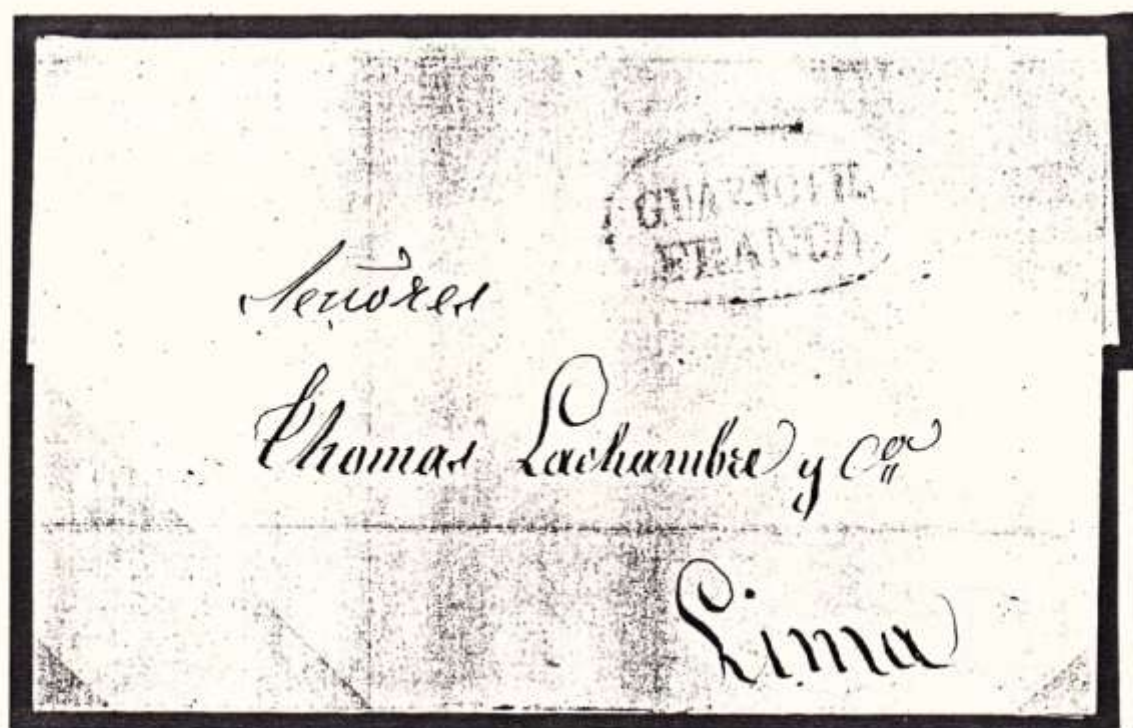 GUAYAQUIL
FRANCA
Señores
Thomas Lachambre y Cª
Lima